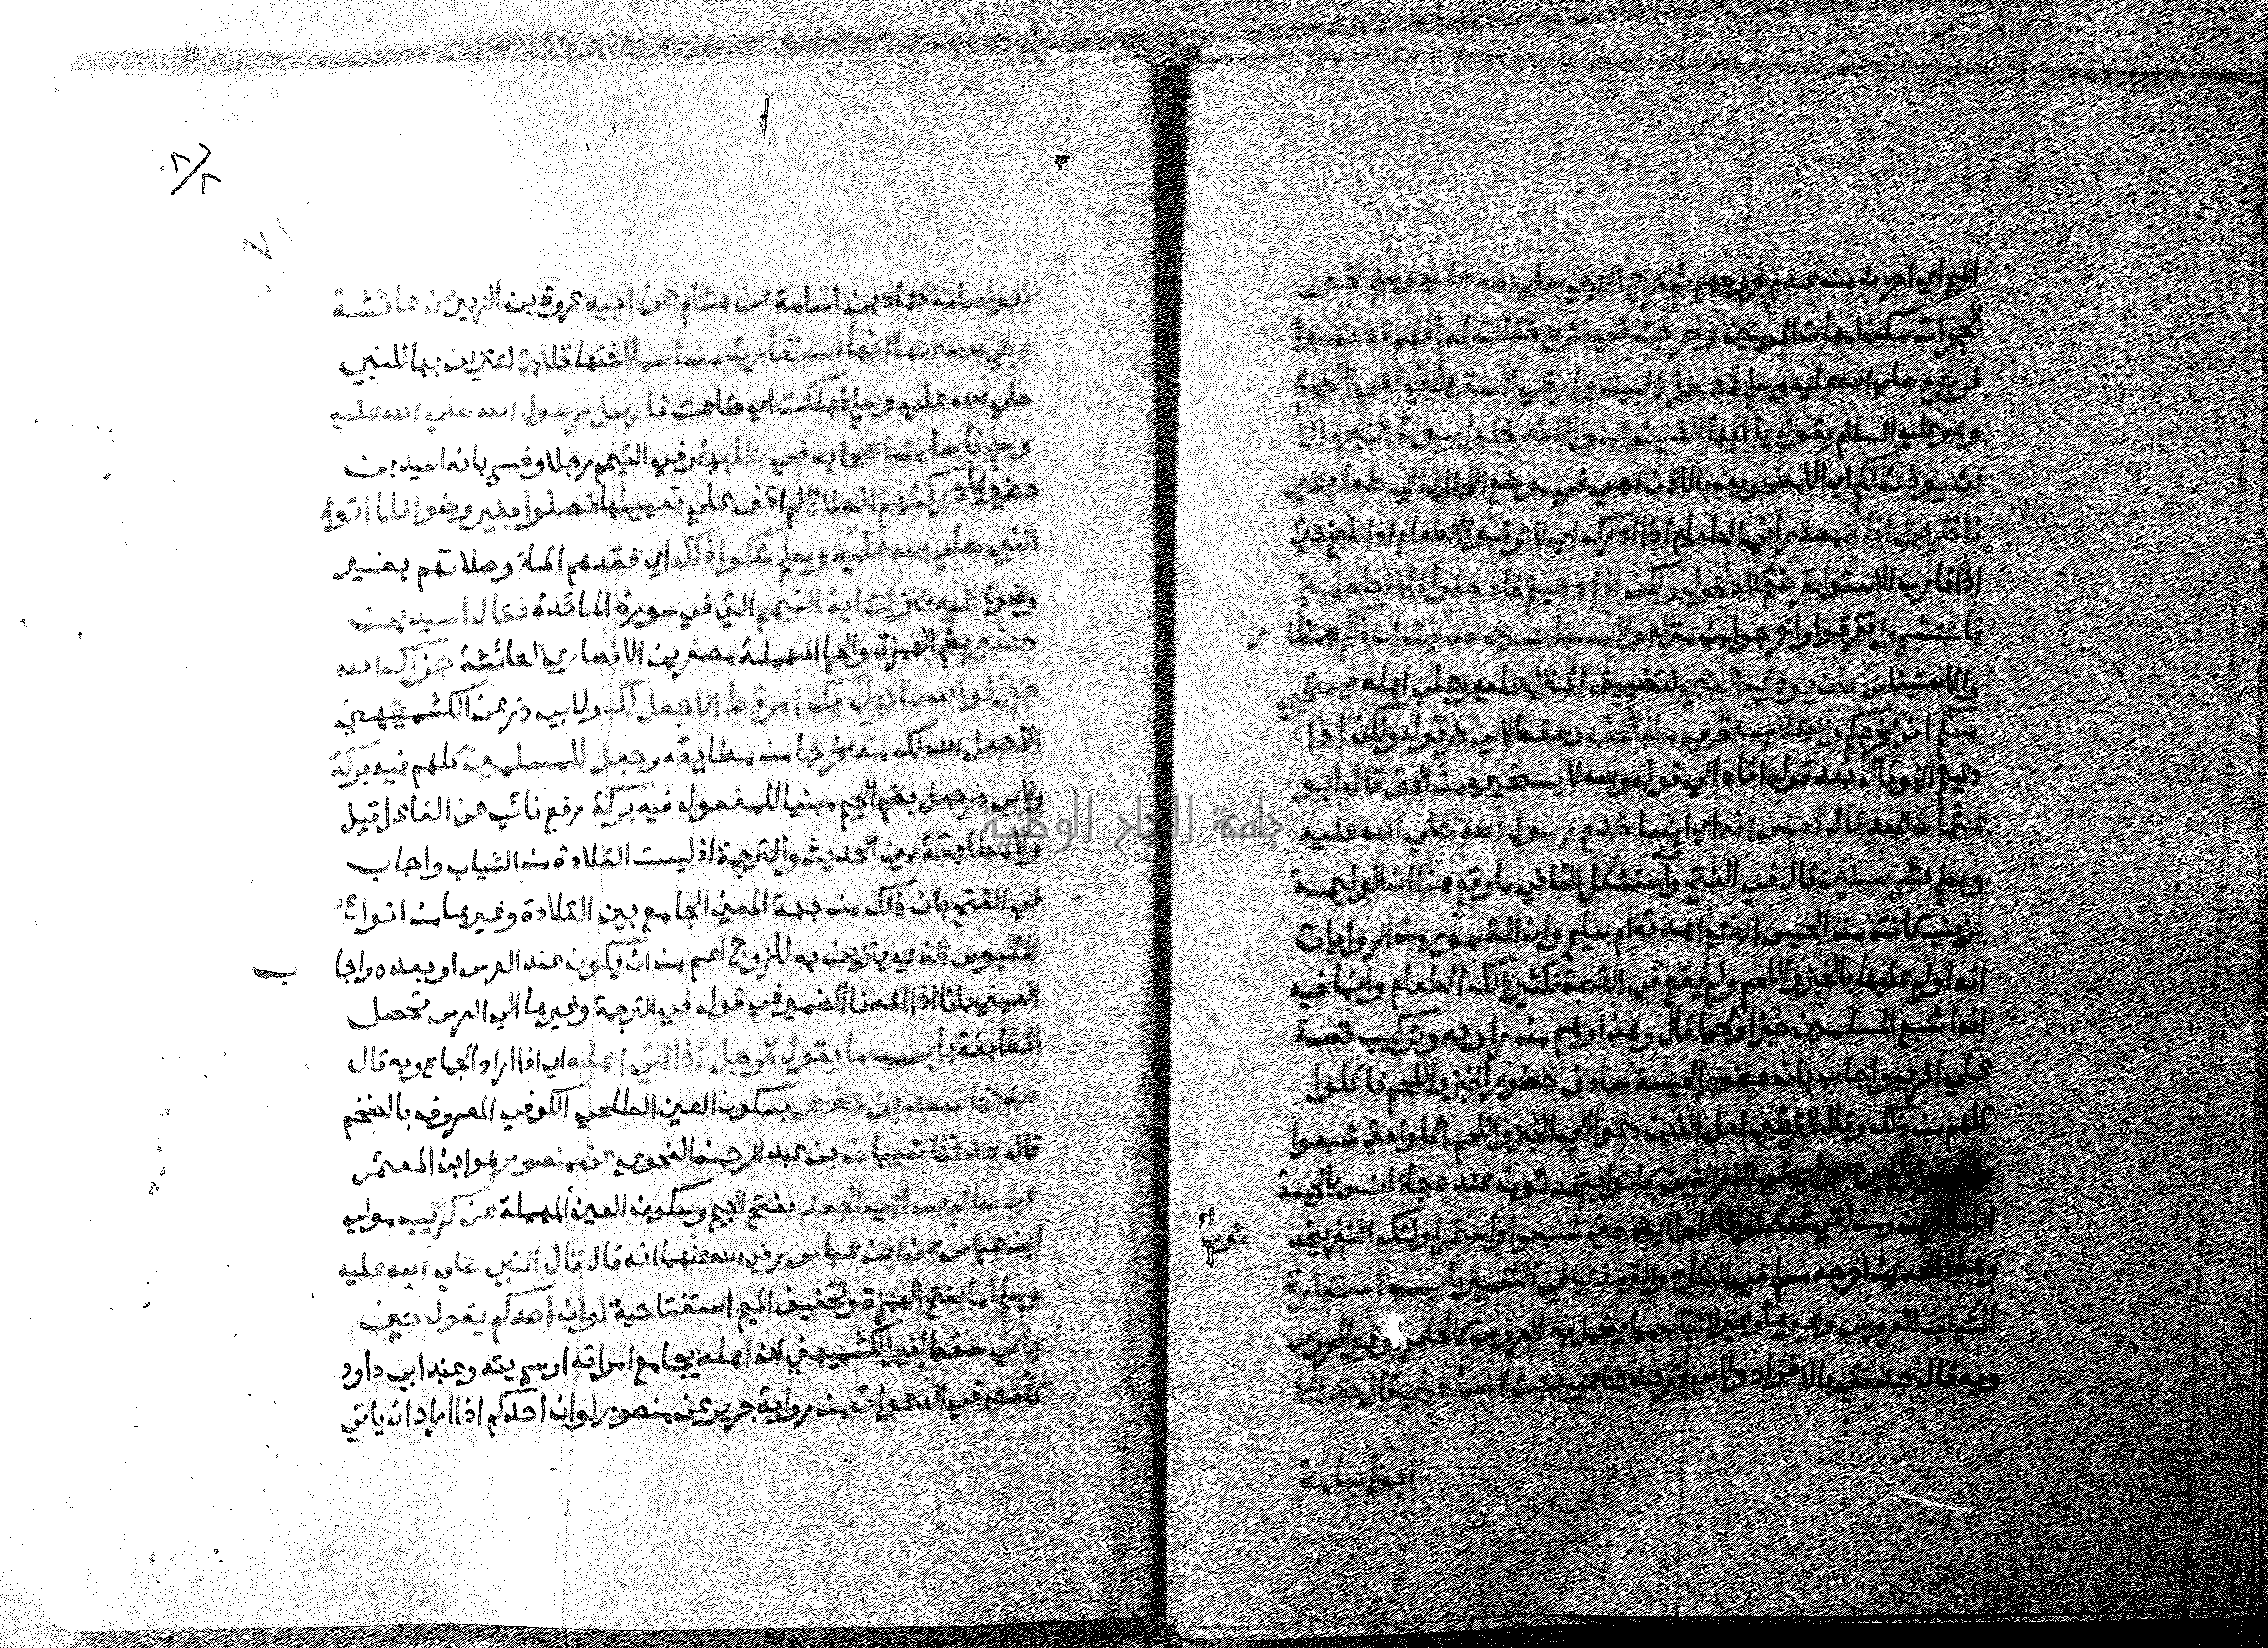 الميم اي احزن من عدم خروجهم ثم خرج النبي صلي الله عليه وسلم نحو
الحجرات سكن امهات المومنين وخرجت في اثره فقلت له انهم قد ذهبوا
فرجع صلي الله عليه وسلم فدخل البيت وارخي الستر واني لفي الحجرة
وهو عليه السلام يقول يا ايها الذين امنوا لا تدخلوا بيوت النبي الا
ان يوذن لكم اي الا مصحوبين بالاذن فهي في موضع الحال الي طعام غير
ناظرين اناه مصدر اني الطعام اذا ادرك اي لا ترقبوا الطعام اذا طبخ حتي
اذا قارب الاستوا تعرضتم للدخول ولكن اذا دعيتم فادخلوا فاذا طعمتم
فانتشروا تفرقوا واخرجوا من منزله ولا مستانسين لحديث ان ذلكم الانتظار
والاستيناس كان يوذي النبي لتضييق المنزل عليه وعلي اهله فيستحيي
منكم ان يخرجكم والله لا يستحيي من الحق وسقط لابي ذر قوله ولكن اذا
دعيتم الخ وقال بعد قوله اناه الي قوله والله لا يستحيي من الحق قال ابو
عثمان الجعد قال انس انه اي انسا خدم رسول الله صلي الله عليه
وسلم عشر سنين قال في الفتح وقد استشكل القاضي ما وقع هنا ان الوليمة
بزينب كانت من الحيس الذي اهدته ام سليم وان المشهور من الروايات
انه اولم عليها بالخبز واللحم ولم يقع في القصة تكثير ذلك الطعام وانما فيه
انه اشبع المسلمين خبزا ولحما قال وهذا وهم من راويه وتركيب قصة
علي اخري واجاب بان حضور الحيسة صادف حضور الخبز واللحم فاكلوا
كلهم من ذلك وقال القرطبي لعل الذين دعوا الي الخبز واللحم اكلوا حتي شبعوا
وذهبوا ولم يرجعوا وبقي النفر الذين كانوا يتحدثون عنده جاء انس بالحيسة
اناسا اخرين ومن لقي فدخلوا فاكلوا ايضا حتي شبعوا واستمر اولئك النفر يتحد ثون
وهذا الحديث اخرجه مسلم في النكاح والترمذي في التفسير باب استعارة
الثياب للعروس وغيرها وغير الثياب مما يتجمل به العروس كالحلي وغير العروس
وبه قال حدثني بالافراد ولابي ذر حدثنا عبيد بن اسماعيل قال حدثنا
ابو اسامة
٧١
ابو اسامة حماد بن اسامة عن هشام عن ابيه عروة بن الزبير عن عائشة
رضي الله عنها انها استعارت من اسما اختها قلادة لتتزين بها للنبي
صلي الله عليه وسلم فهلكت اي ضاعت فارسل رسول الله صلي الله عليه
وسلم ناسا من اصحابه في طلبها وفي التيمم رجلا وفسر بانه اسيد بن
حضير فادركتهم الصلاة لم اقف علي تعيينها فصلوا بغير وضوء فلما اتوا
النبي صلي الله عليه وسلم شكوا ذلك اي فقدهم الماء وصلاتهم بغير
وضوء اليه فنزلت اية التيمم التي في سورة المائدة فقال اسيد بن
حضير بضم الهمزة والحا المهملة مصغرين الانصاري لعائشة جزاك الله
خيرا فوالله ما نزل بك امر قط الا جعل لك ولابي ذر عن الكشميهني
الا جعل الله لك منه مخرجا من مضايقه وجعل للمسلمين كلهم فيه بركة
ولابي ذر جعل بضم الجيم مبنيا للمفعول فيه بركة رفع نائب عن الفاعل قيل
ولا مطابقة بين الحديث والترجمة اذ ليست القلادة من الثياب واجاب
في الفتح بان ذلك من جهة المعني الجامع بين القلادة وغيرها من انواع
الملبوس الذي يتزين به للزوج اعم من ان يكون عند العرس او بعده واجاب
العيني بانا اذا اعدنا الضمير في قوله في الترجمة وغيرها الي العرس تحصل
المطابقة باب ما يقول الرجل اذا اتي اهله اي اذا اراد الجماع وبه قال
حدثنا سعد بن حفص بسكون العين الطلحي الكوفي المعروف بالضخم
قال حدثنا شيبان بن عبد الرحمن النحوي عن منصور هو ابن المعتمر
عن سالم بن ابي الجعد بفتح الجيم وسكون العين المهملة عن كريب مولي
ابن عباس عن ابن عباس رضي الله عنهما انه قال قال النبي صلي الله عليه
وسلم اما بفتح الهمزة وتخفيف الميم استفتاحية لو ان احدكم يقول حين
ياتي سقط لغير الكشميهني ان اهله يجامع امراته او سريته وعند ابي داود
كالمص في الدعوات من رواية جرير عن منصور لو ان احدكم اذا اراد ان ياتي
جامعة النجاح الوطنية